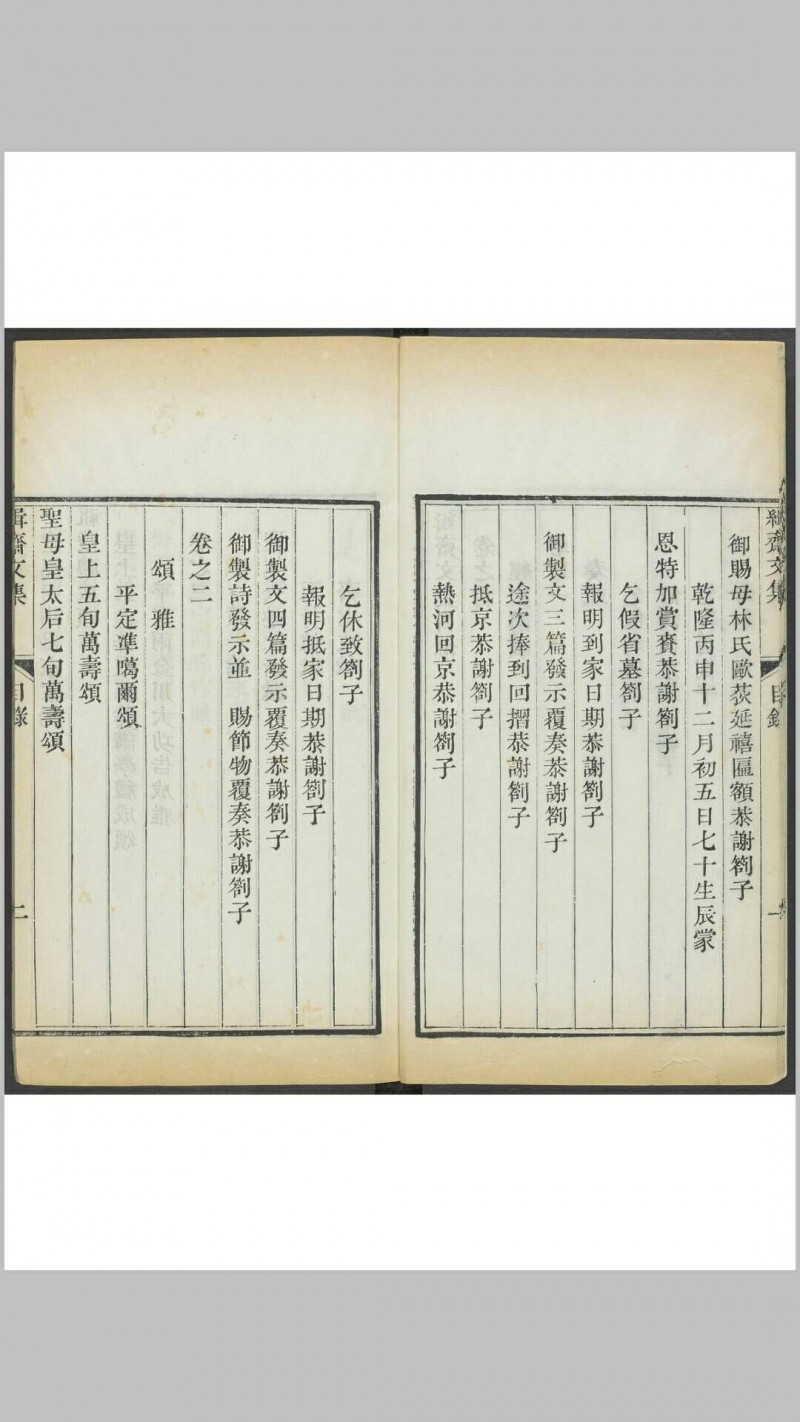 緝齋文集 目錄 一
御賜母林氏歐荻延禧匾額恭謝劄子
乾隆丙申十二月初五日七十生辰蒙
恩特加賞賚恭謝劄子
乞假省墓劄子
報明到家日期恭謝劄子
御製文三篇發示覆奏恭謝劄子
途次捧到回摺恭謝劄子
抵京恭謝劄子
熱河回京恭謝劄子
乞休致劄子
報明抵家日期恭謝劄子
御製文四篇發示覆奏恭謝劄子
御製詩發示並 賜節物覆奏恭謝劄子
卷之二
頌 雅
平定準噶爾頌
皇上五旬萬壽頌
聖母皇太后七旬萬壽頌
緝齋文集 目錄 二